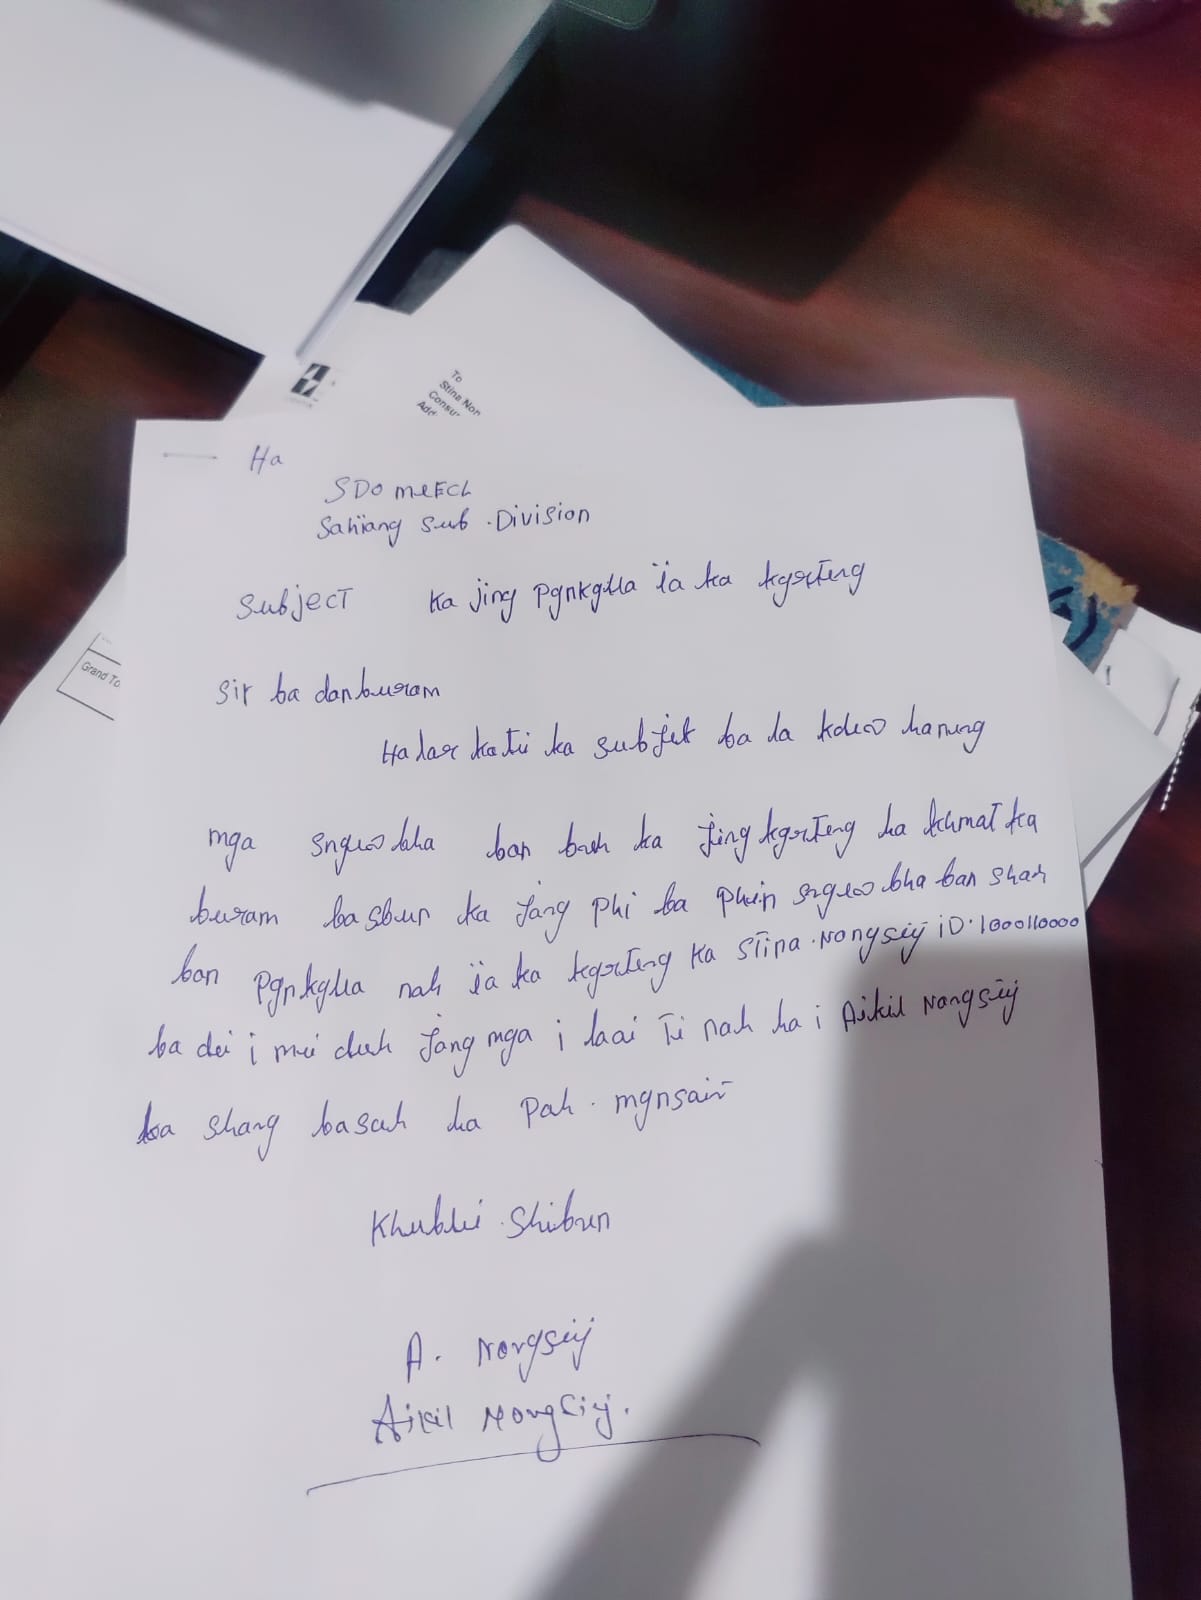 To
Stina Non
Consu
Add
Grand To
Ha
SDO MeECL
Sahiang Sub . Division
Subject Ka jing pynkylla ïa ka kyrteng
Sir ba donburom
Hadar katei ka subjek ba la kdew haneng
nga sngewbha ban buh ka jingkyrteng ha khmat ka
burom basbun ka jong phi ba phin sngewbha ban shah
ban pynkylla nah ïa ka kyrteng Ka Stina . Nongsiej iD . 1000110000
ba dei i mei duh jong nga i laai Ti nah ha i Aikil Nongsiej
ba shong basah ha Pah . mynsain
Khublei . Shibun
A. Nongsiej
Aikil Nongsiej.